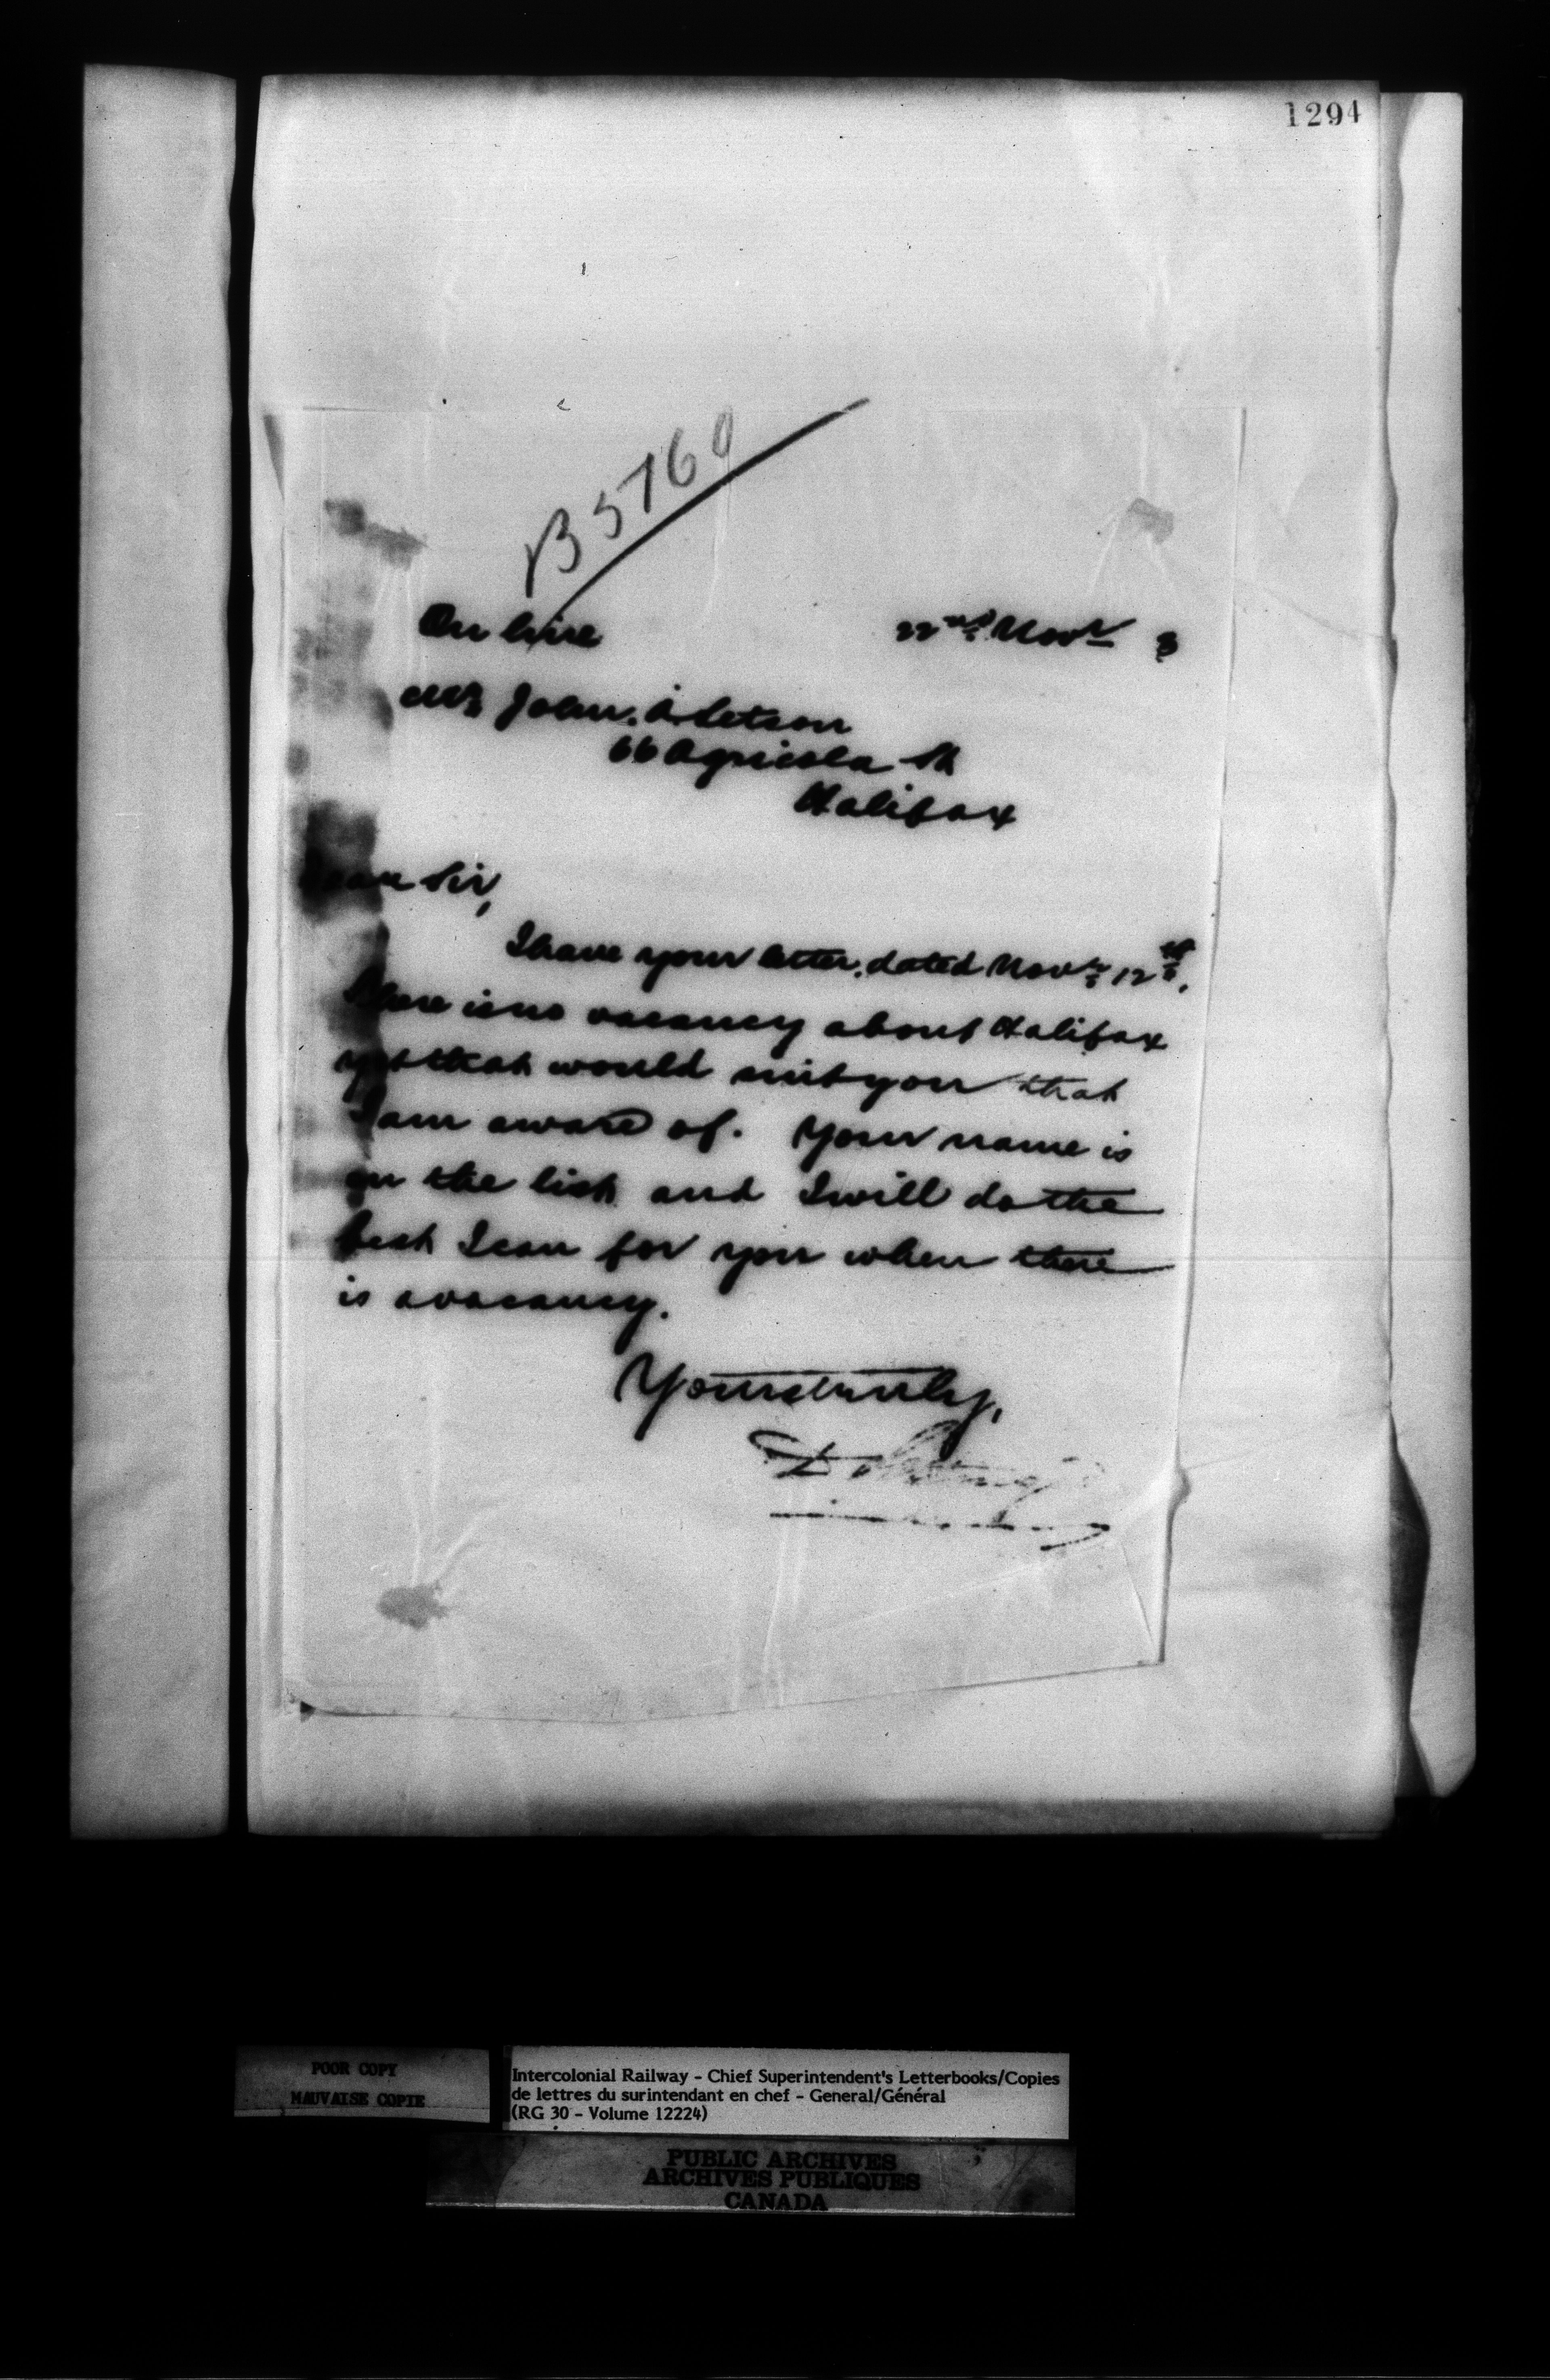 1294
B5760
On line 22nd Novr 3
Mr John. A. Letson
66 Agricola St
Halifax
Dear Sir,
I have your letter, dated Novr 12th.
There is no vacancy about Halifax
yet that would suit you that
I am aware of. Your name is
on the list and I will do the
best I can for you when there
is a vacancy.
Yours truly,
POOR COPY
MAUVAISE COPIE
Intercolonial Railway - Chief Superintendent's Letterbooks/Copies
de lettres du surintendant en chef - General/Général
(RG 30 - Volume 12224)
PUBLIC ARCHIVES
ARCHIVES PUBLIQUES
CANADA